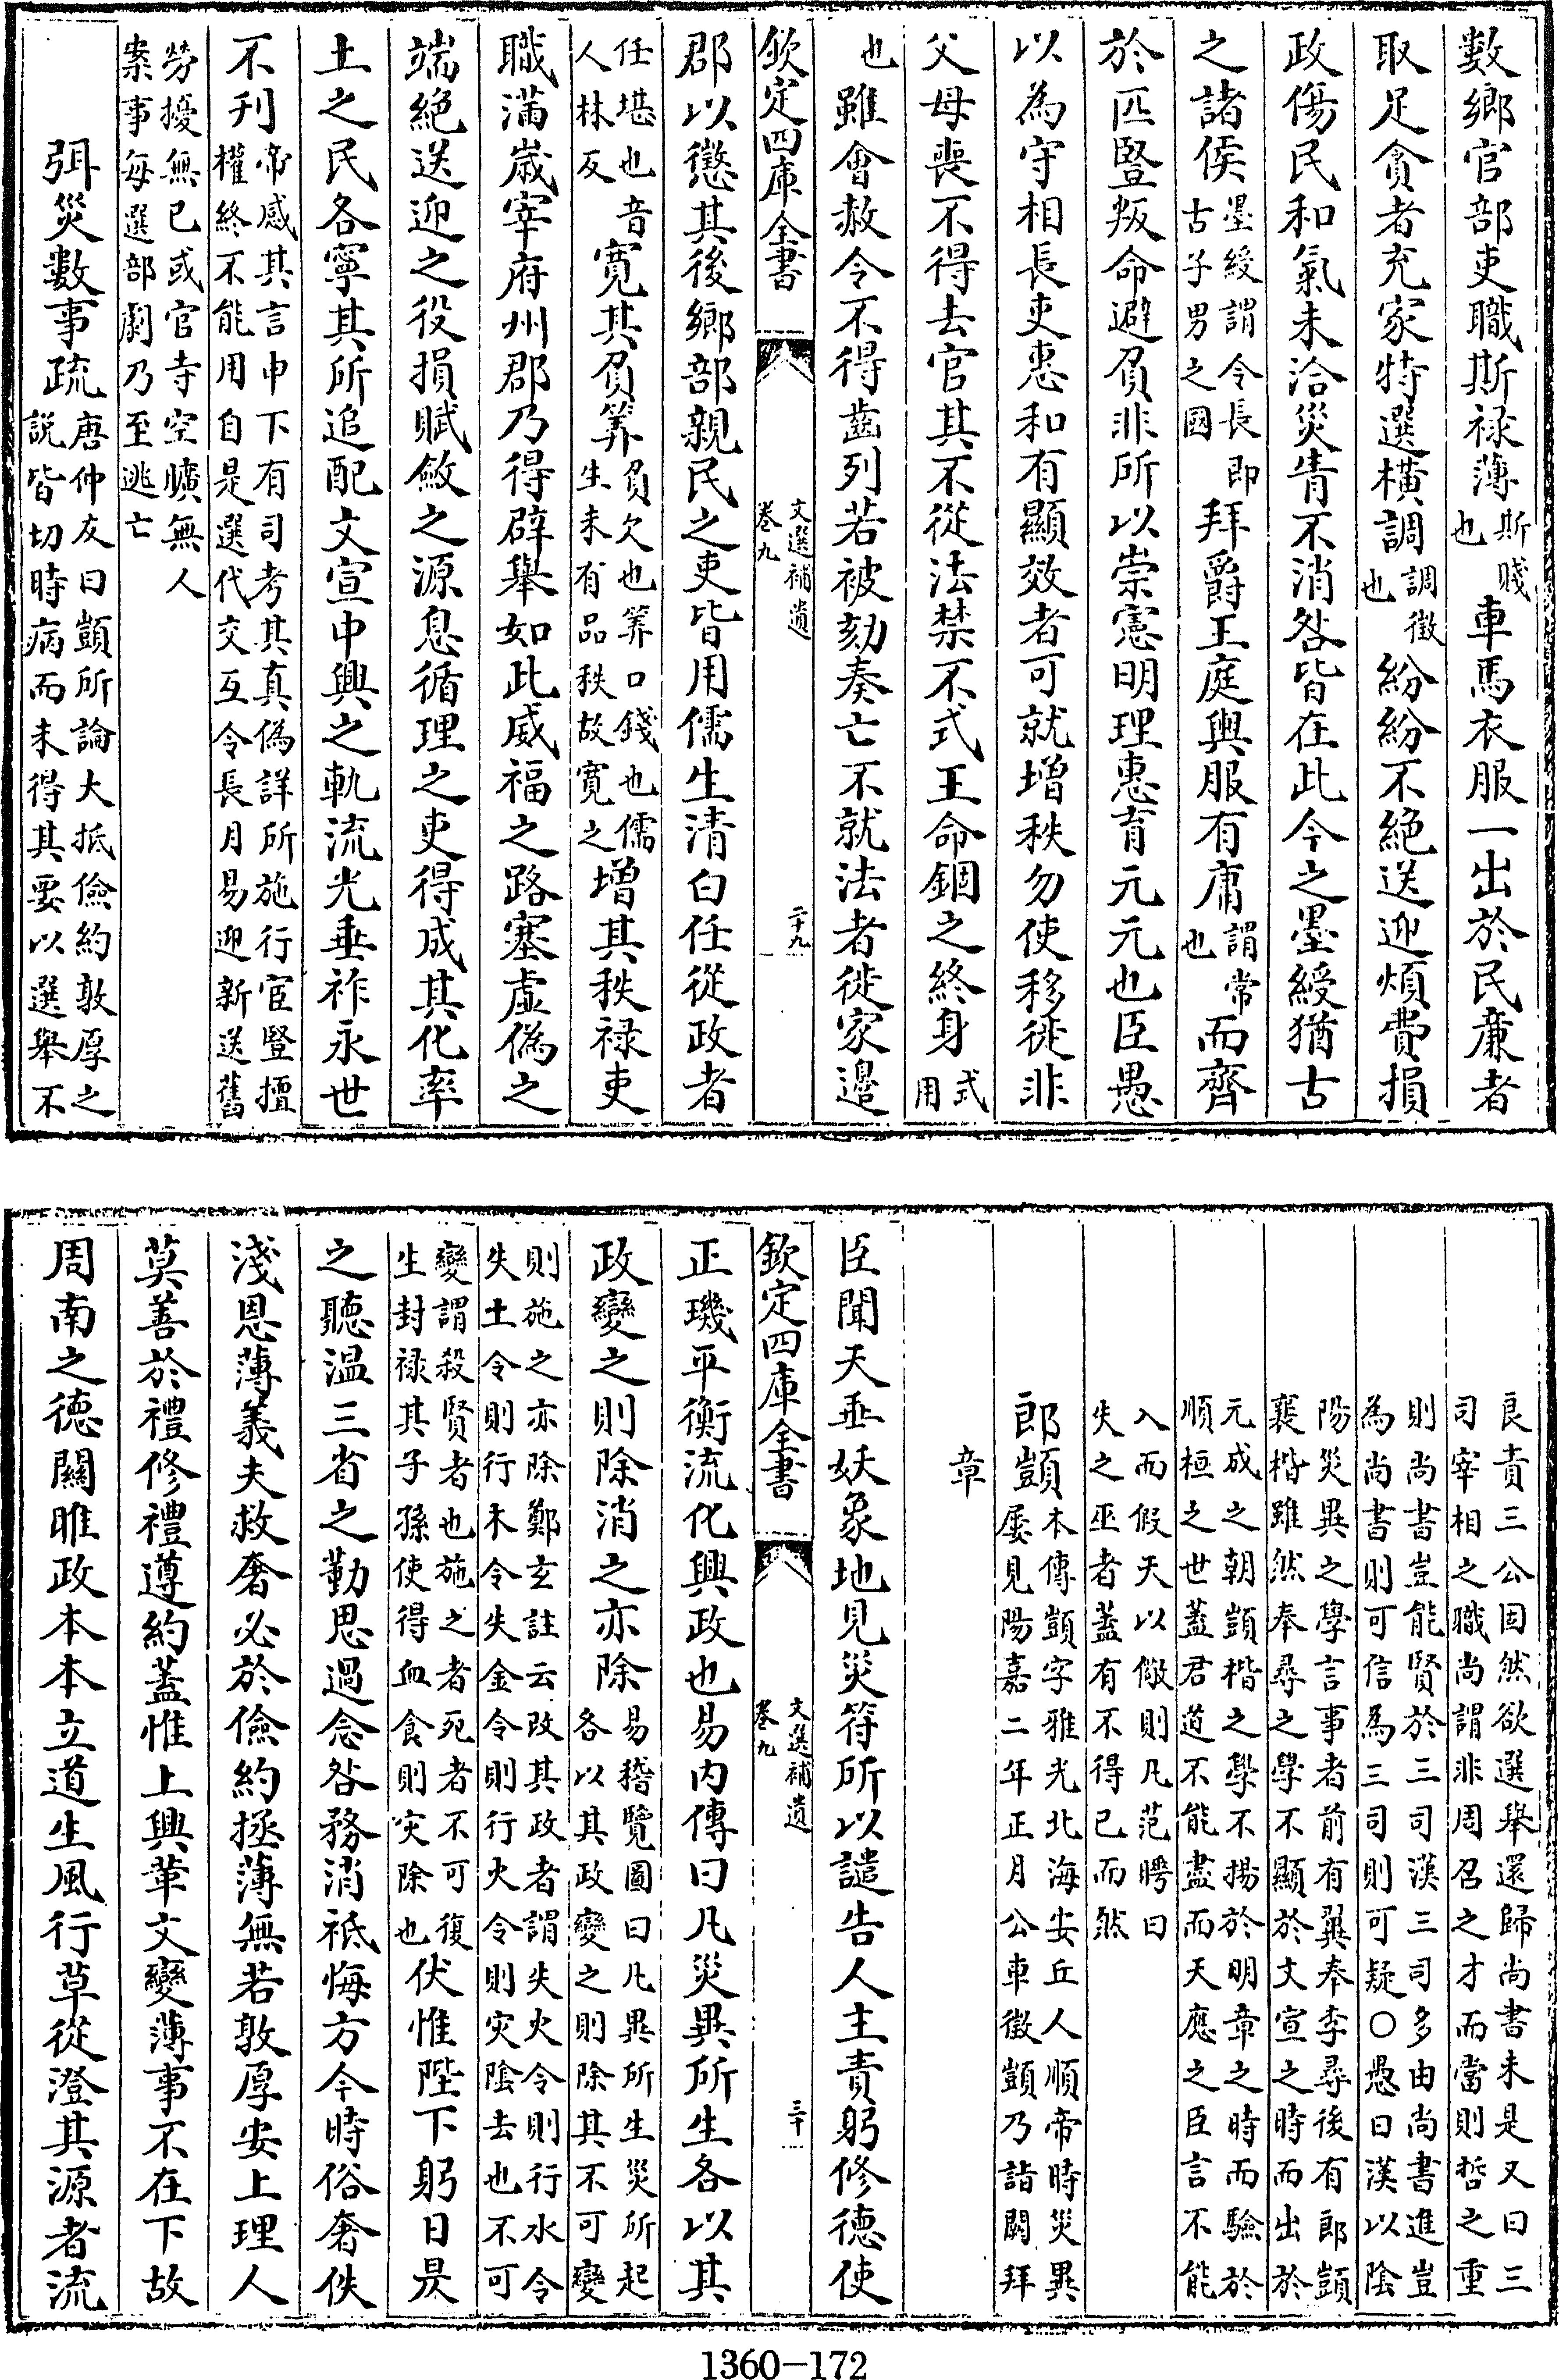 數鄉官部吏職斯祿薄斯賤也車馬衣服一出於民廉者
取足貪者充家特選橫調調徵也紛紛不絕送迎煩費損
政傷民和氣未洽災眚不消咎皆在此今之墨綬猶古
之諸侯墨綬謂令長即古子男之國拜爵王庭輿服有庸謂常也而齊
於匹豎叛命避負非所以崇憲明理惠育元元也臣愚
以為守相長吏惠和有顯效者可就增秩勿使移徙非
父母喪不得去官其不從法禁不式王命錮之終身式用
也雖會赦令不得齒列若被劾奏亡不就法者徙家邊
欽定四庫全書 文選補遺 卷九 二十九
郡以懲其後鄉部親民之吏皆用儒生清白任從政者
任堪也音人林反寬其負筭負欠也筭口錢也儒生未有品秩故寬之增其秩祿吏
職滿歲宰府州郡乃得辟舉如此威福之路塞虛偽之
端絕送迎之役損賦斂之源息循理之吏得成其化率
土之民各寧其所追配文宣中興之軌流光垂祚永世
不刊帝感其言申下有司考其真偽詳所施行宦豎擅權終不能用自是選代交互令長月易迎新送舊
勞擾無已或官寺空曠無人案事每選部劇乃至逃亡
弭災數事疏唐仲友曰顗所論大抵儉約敦厚之說皆切時病而未得其要以選舉不
良責三公固然欲選舉還歸尚書未是又曰三司宰相之職尚謂非周召之才而當則哲之重
則尚書豈能賢於三司漢三司多由尚書進豈為尚書則可信為三司則可疑○愚曰漢以陰
陽災異之學言事者前有翼奉李尋後有郎顗襄楷雖然奉尋之學不顯於文宣之時而出於
元成之朝顗楷之學不揚於明章之時而驗於順桓之世蓋君道不能盡而天應之臣言不能
入而假天以儆則凡范曄曰失之巫者蓋有不得已而然
郎顗本傳顗字雅光北海安丘人順帝時災異屢見陽嘉二年正月公車徵顗乃詣闕拜
章
臣聞天垂妖象地見災符所以譴告人主責躬修德使
欽定四庫全書 文選補遺 卷九 三十
正璣平衡流化興政也易內傳曰凡災異所生各以其
政變之則除消之亦除易稽覽圖曰凡異所生災所起各以其政變之則除其不可變
則施之亦除鄭玄註云改其政者謂失火令則行水令失土令則行木令失金令則行火令則災陰去也不可
變謂殺賢者也施之者死者不可復生封祿其子孫使得血食則災除也伏惟陛下躬日昃
之聽溫三省之勤思過念咎務消祇悔方今時俗奢佚
淺恩薄義夫救奢必於儉約拯薄無若敦厚安上理人
莫善於禮修禮遵約蓋惟上興革文變薄事不在下故
周南之德關雎政本本立道生風行草從澄其源者流
1360-172